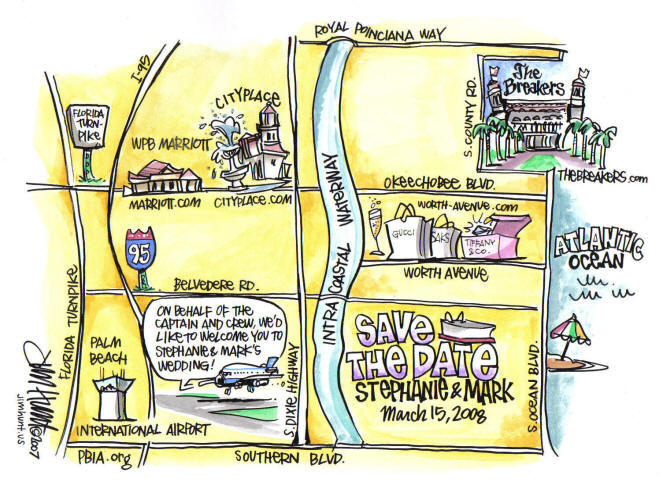 ROYAL POINCIANA WAY
I-95
CITYPLACE
S. COUNTY RD.
The
Breakers
FLORIDA
TURN-
PIKE
WPB MARRIOTT
THEBREAKERS.com
OKEECHOBEE BLVD.
MARRIOTT.COM
CITYPLACE.COM
INTRACOASTAL WATERWAY
WORTH-AVENUE.COM
GUCCI
SAKS
TIFFANY
& CO.
WORTH AVENUE
ATLANTIC
OCEAN
95
BELVEDERE RD.
FLORIDA TURNPIKE
ON BEHALF OF THE
CAPTAIN AND CREW, WE'D
LIKE TO WELCOME YOU TO
STEPHANIE & MARK'S
WEDDING!
S. DIXIE HIGHWAY
SAVE
THE DATE
STEPHANIE & MARK
March 15, 2008
S. OCEAN BLVD.
PALM
BEACH
INTERNATIONAL AIRPORT
PBIA.org
SOUTHERN BLVD.
JIM HUNT ©2007
jimhunt.us